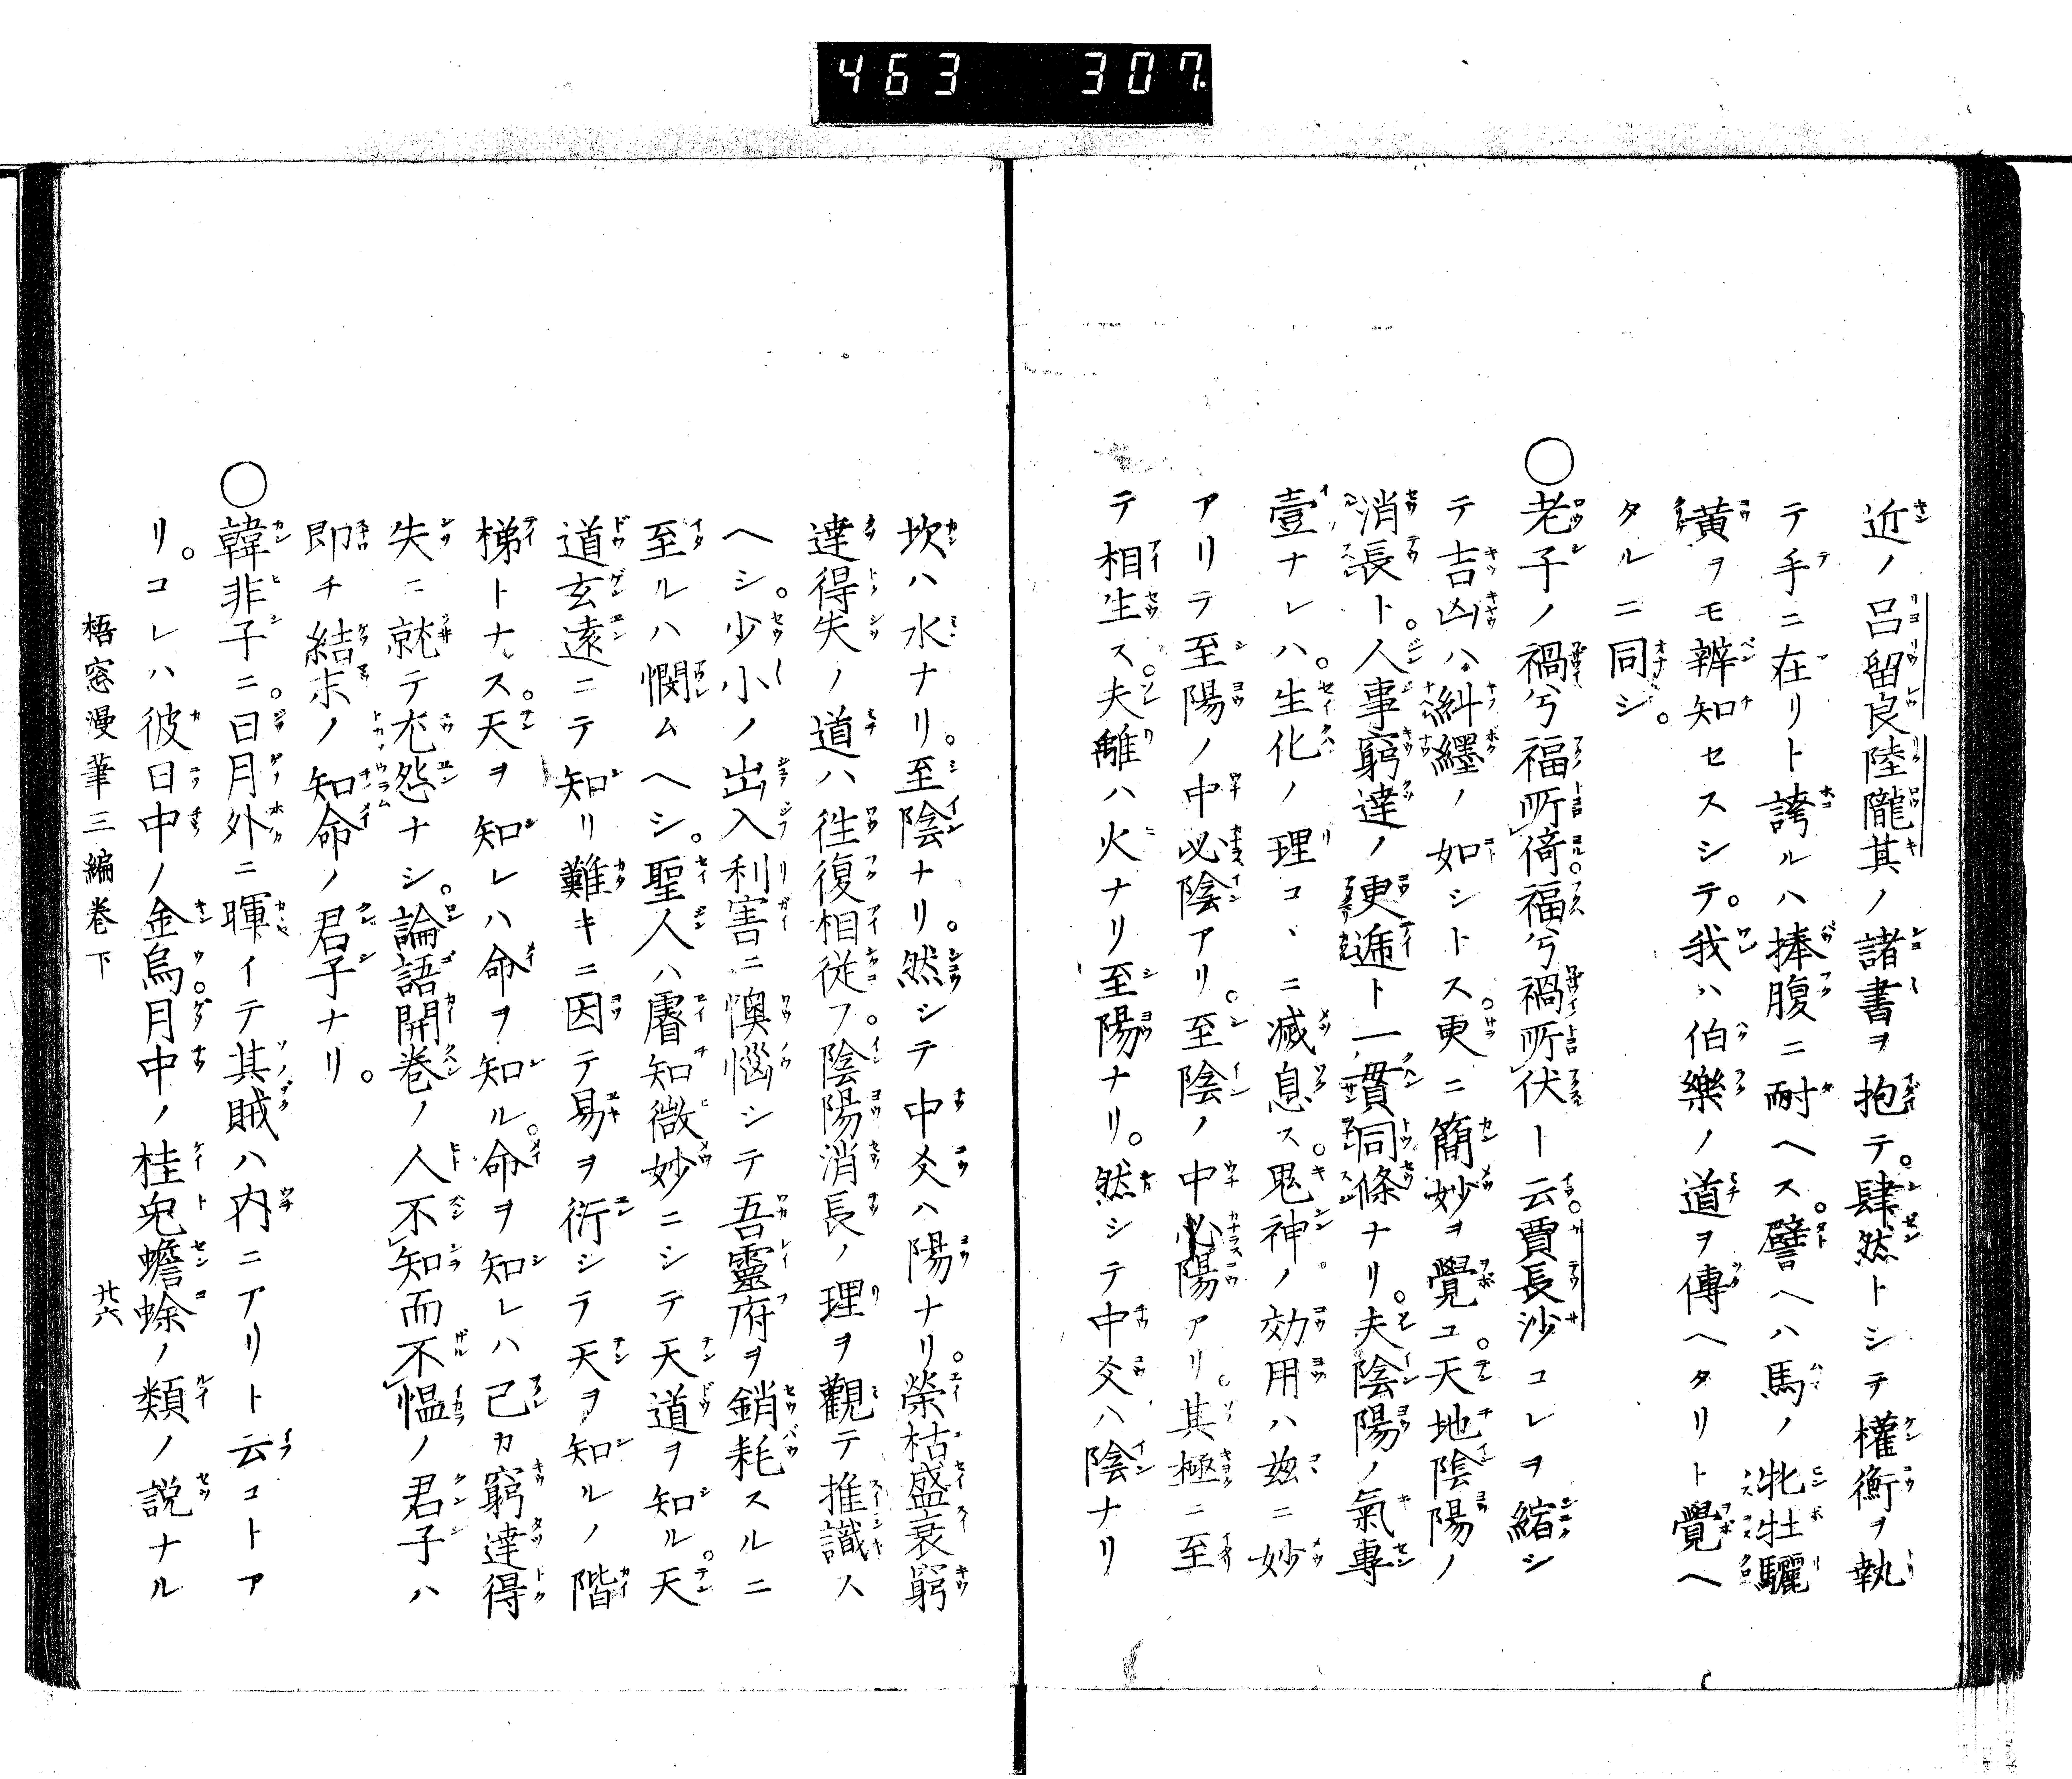 463 307.
近ノ呂留良陸隴其ノ諸書ヲ抱テ。肆然トシテ權衡ヲ執
テ手ニ在リト誇ルハ捧腹ニ耐ヘス。譬ヘハ馬ノ牝牡驪
黄ヲモ辨知セスシテ。我ハ伯樂ノ道ヲ傳ヘタリト覺ヘ
タルニ同シ。
○老子ノ禍兮福所倚。福兮禍所伏ト云。賈長沙コレヲ縮シ
テ吉凶ハ糾纆ノ如シトス。更ニ簡妙ヲ覺ユ。天地陰陽ノ
消長ト。人事窮達ノ更遞ト一貫同條ナリ。夫陰陽ノ氣專
壹ナレハ。生化ノ理コヽニ滅息ス。鬼神ノ効用ハ玆ニ妙
アリテ至陽ノ中必陰アリ。至陰ノ中必陽アリ。其極ニ至
テ相生ス。夫離ハ火ナリ至陽ナリ。然シテ中爻ハ陰ナリ
坎ハ水ナリ。至陰ナリ。然シテ中爻ハ陽ナリ。榮枯盛衰窮
達得失ノ道ハ徃復相従フ。陰陽消長ノ理ヲ觀テ推識ス
ヘシ。少小ノ出入利害ニ懊惱シテ吾靈府ヲ銷耗スルニ
至ルハ憫ムヘシ。聖人ハ睿知微妙ニシテ天道ヲ知ル。天
道玄遠ニテ知リ難キニ因テ易ヲ衍シテ天ヲ知ルノ階
梯トナス。天ヲ知レハ命ヲ知ル。命ヲ知レハ己カ窮達得
失ニ就テ尤怨ナシ。論語開巻ノ人不知而不慍ノ君子ハ
即チ結末ノ知命ノ君子ナリ。
○韓非子ニ。日月外ニ暉イテ其賊ハ内ニアリト云コトア
リ。コレハ彼日中ノ金烏。月中ノ桂兎蟾蜍ノ類ノ説ナル
梧窓漫筆三編巻下 廿六